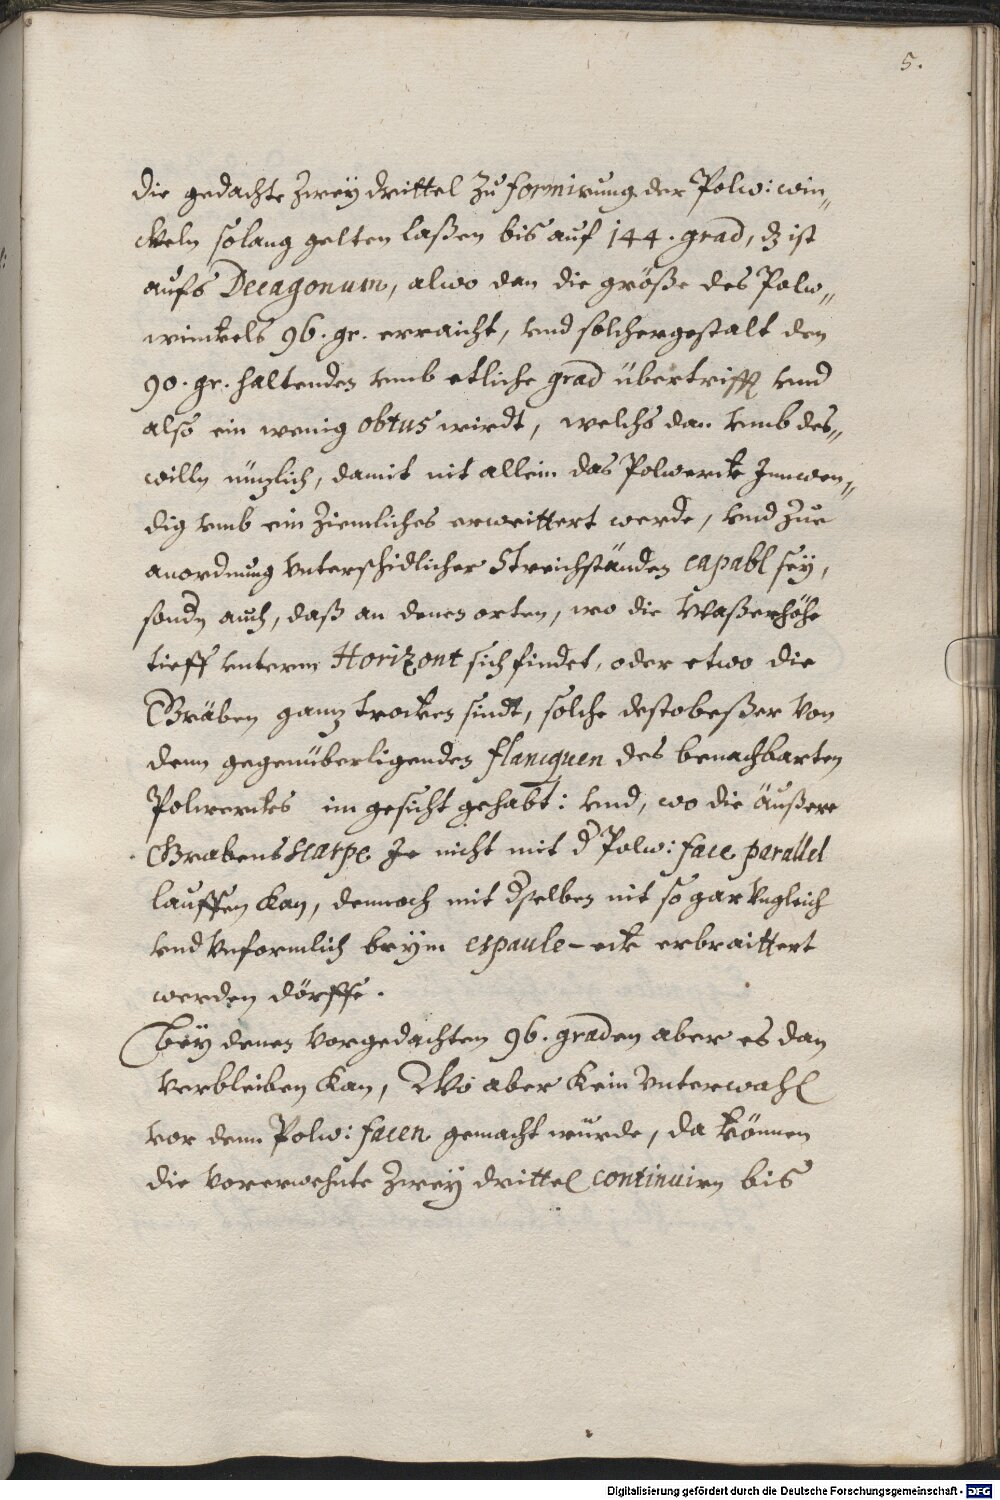 5.
die gedachte Zweÿ drittel Zu formirung der Polw: win„
ckeln solang gelten laßen bis auf 144. grad, dz ist
aufs Decagonum, alwo dan die größe des Polw„
winckels 96. gr. erraicht, vnd solchergestalt den
90. gr. haltenden vmb etliche grad übertrifft vnd
also ein wenig obtus wirdt, welchs dan vmb des„
willn nüzlich, damit nit allein das Polwerck Innwen„
dig vmb ein Ziemliches erweittert werde, vnd Zue
anordnung vnterschidlicher Streichständen capabl seÿ,
sondn auch, daß an denen orten, wo die Waßerhöhe
tieff vnterm Horizont sich findet, oder etwo die
Gräben ganz trocken sindt, solche destobeßer von
denn gegenüberligenden flancquen des benachbarten
Polwerckes im gesicht gehabt: vnd, wo die äußere
Grabens scarpe Je nicht mit d Polw: face parallel
lauffen kan, dennoch mit dselben nit so gar vngleich
vnd vnformlich beÿm espaule-eck erbraittert
werden dörffe.
Beÿ denen vorgedachten 96. graden aber es dan
verbleiben kan, Wo aber kein vnterwahl
vor denn Polw: facen gemacht würde, da können
die vorerwehnte Zweÿ drittel continuirn bis
Digitalisierung gefördert durch die Deutsche Forschungsgemeinschaft - DFG